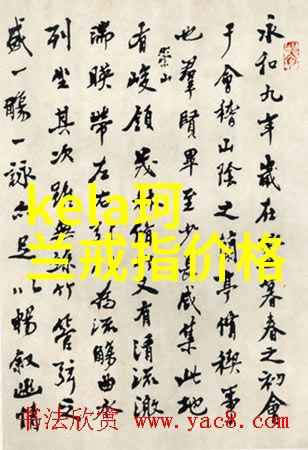 永和九年歲在癸丑暮春之初會
于會稽山陰之蘭亭脩稧事
也羣賢畢至少長咸集此地
有崇山峻領茂林脩竹又有清流激
湍暎帶左右引以為流觴曲水
列坐其次雖無絲竹管弦之
盛一觴一詠亦足以暢敘幽情
kela珂
兰戒指价格
书法欣赏 www.yac8.com